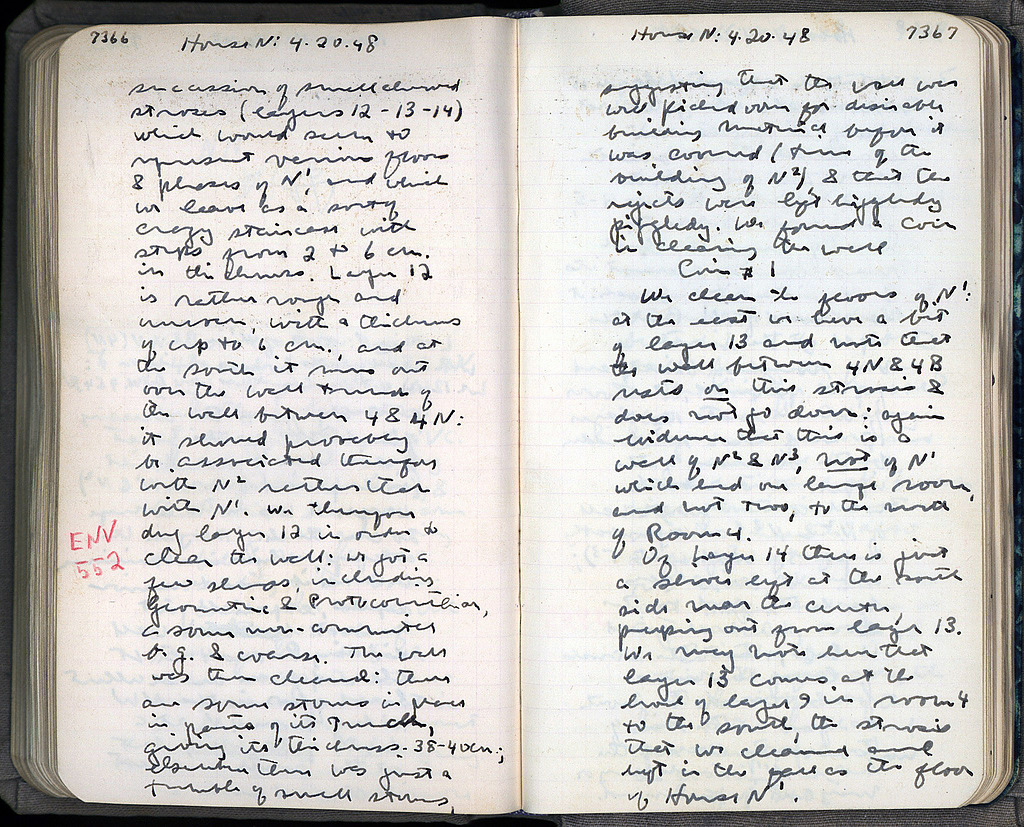 7366 House N: 4.20.48
succession of small clayed
stroses (layers 12-13-14)
which would seem to
represent various floors
& phases of N', and which
we leave as a sort of
crazy staircase with
steps from 2 to 6 cm.
in thickness. Layer 12
is rather rough and
uneven, with a thickness
of up to 6 cm., and at
the south it runs out
over the wall trench of
the wall between 4 & 4N:
it should probably
be associated therefore
with N² rather than
with N'. We therefore
dug layer 12 in order to
clear the wall: we got a
few sherds, including
Geometric & Protocorinthian,
& some non-committal
b.g. & coarse. The wall
was then cleaned: there
are some stones in place
in parts of its trench,
giving its thickness - 38-40cm;
elsewhere there was just a
tumble of small stones,
ENV
552
House N: 4.20.48 7367
suggesting that the wall was
well picked over for desirable
building material before it
was covered (time of the
building of N²), & that the
rejects were left higgledy
piggledy. We found a coin
in clearing the wall
Coin # 1
We clean the floors of N':
at the east we have a bit
of layer 13 and note that
the wall between 4N & 4B
rests on this strosis &
does not go down: again
evidence that this is a
wall of N² & N³, not of N'
which had one large room,
and not two, to the north
of Room 4.
Of layer 14 there is just
a sliver left at the south
side near the center,
peeping out from layer 13.
We may note here that
layer 13 comes at the
level of layer 9 in room 4
to the south, the strosis
that we cleaned and
left in the place as the floor
of House N'.